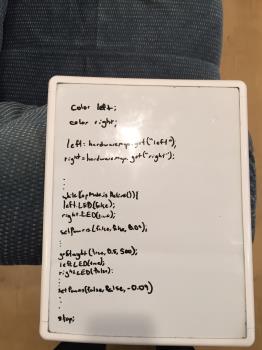 Color left;
color right;
left: hardwaremap.get("left");
right=hardwaremap.get("right");
:
:
while(opmode.isActive()){
left.LED(false);
right.LED(true);
setPowers(false, false, 0.09);
:
goStraight(true, 0.5, 500);
left.LED(true);
right.LED(false);
:
setPowers(false, false, -0.09)
:
stop;